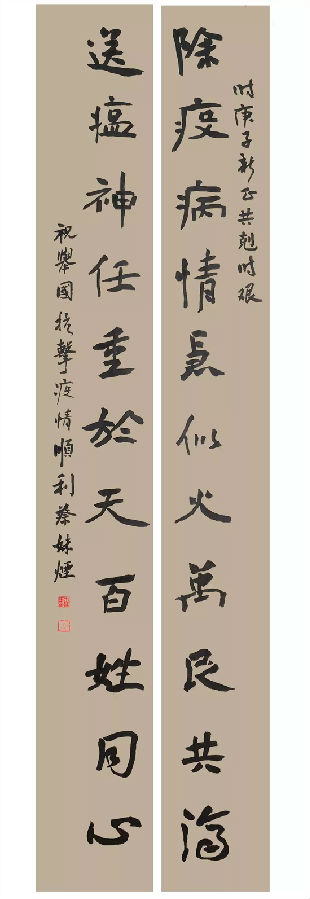 时庚子新正共剋时艰
除疫病情急似火萬民共濟
送瘟神任重於天百姓同心
祝舉國抗擊疫情順利